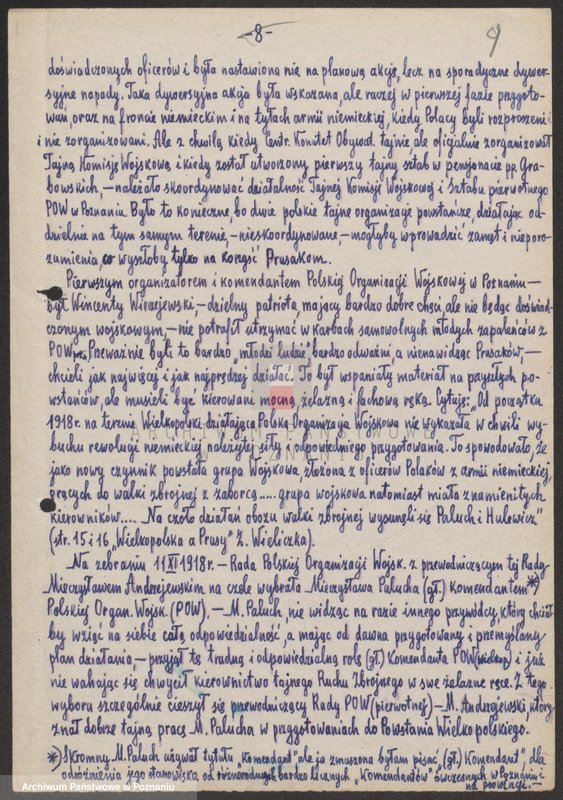 -8-
9
doświadczonych oficerów i była nastawiona nie na planową akcję, lecz na sporadyczne dywer-
syjne napady. Taka dywersyjna akcja była wskazana, ale raczej w pierwszej fazie przygoto-
wań, oraz na froncie niemieckim i na tyłach armii niemieckiej, kiedy Polacy byli rozproszeni
i nie zorganizowani. Ale z chwilą kiedy Centr. Komitet Obywat. tajnie ale oficjalnie zorganizował
Tajną Komisję Wojskową i kiedy został utworzony pierwszy tajny sztab w pensjonacie pp. Gra-
bowskich, – należało skoordynować działalność Tajnej Komisji Wojskowej i Sztabu pierwotnego
POW w Poznaniu. Było to konieczne, bo dwie polskie tajne organizacje powstańcze, działając od-
dzielnie na tym samym terenie, – nieskoordynowane, – mogłyby wprowadzić zamęt i nieporo-
zumienia, co wyszłoby tylko na korzyść Prusakom.
Pierwszym organizatorem i komendantem Polskiej Organizacji Wojskowej w Poznaniu –
był Wincenty Wierzejewski, – dzielny patriota, mający bardzo dobre chęci, ale nie będąc doświad-
czonym wojskowym, – nie potrafił utrzymać w karbach samowolnych młodych zapaleńców z
POW. Przeważnie byli to bardzo „młodzi ludzie" bardzo odważni, a nienawidząc Prusaków, –
chcieli jak najwięcej i jak najprędzej działać. To był wspaniały materiał na przyszłych po-
wstańców, ale musieli być kierowani mocną, żelazną i fachową ręką. Cytuję: „Od początku
1918r. na terenie Wielkopolski działająca Polska Organizacja Wojskowa nie wykazała w chwili wy-
buchu rewolucji niemieckiej należytej siły i odpowiedniego przygotowania. To spowodowało, że
jako nowy czynnik powstała grupa Wojskowa, złożona z oficerów Polaków z armii niemieckiej,
prących do walki zbrojnej z zaborcą..... grupa wojskowa natomiast miała znamienitych
kierowników.... Na czoło działań obozu walki zbrojnej wysunęli się Paluch i Hulewicz"
(str. 15 i 16 „Wielkopolska a Prusy" Z. Wieliczka).
Na zebraniu 11 XI 1918r. – Rada Polskiej Organizacji Wojsk. z przewodniczącym tej Rady
Mieczysławem Andrzejewskim na czele wybrała Mieczysława Palucha (gł.) Komendantem *)
Polskiej Organ. Wojsk. (POW). – M. Paluch, nie widząc na razie innego przywódcy, który chciał-
by wziąć na siebie całą odpowiedzialność, a mając od dawna przygotowany i przemyślany
plan działania, – przyjął tę trudną i odpowiedzialną rolę (gł.) Komendanta POW (wielkop.) i już
nie wahając się chwycił kierownictwo tajnego Ruchu Zbrojnego w swe żelazne ręce. Z tego
wyboru szczególnie cieszył się przewodniczący Rady POW (pierwotnej) – M. Andrzejewski, który
znał dobrze tajną pracę M. Palucha w przygotowaniach do Powstania Wielkopolskiego.
*) Skromny M. Paluch używał tytułu „Komendant" ale ja zmuszona byłam pisać „(gł.) Komendant", dla
odróżnienia jego stanowiska od różnorodnych bardzo licznych „Komendantów" ówczesnych w Poznaniu i
na prowincji. –
ARCHIWUM PAŃSTWOWE
W POZNANIU
Archiwum Państwowe w Poznaniu